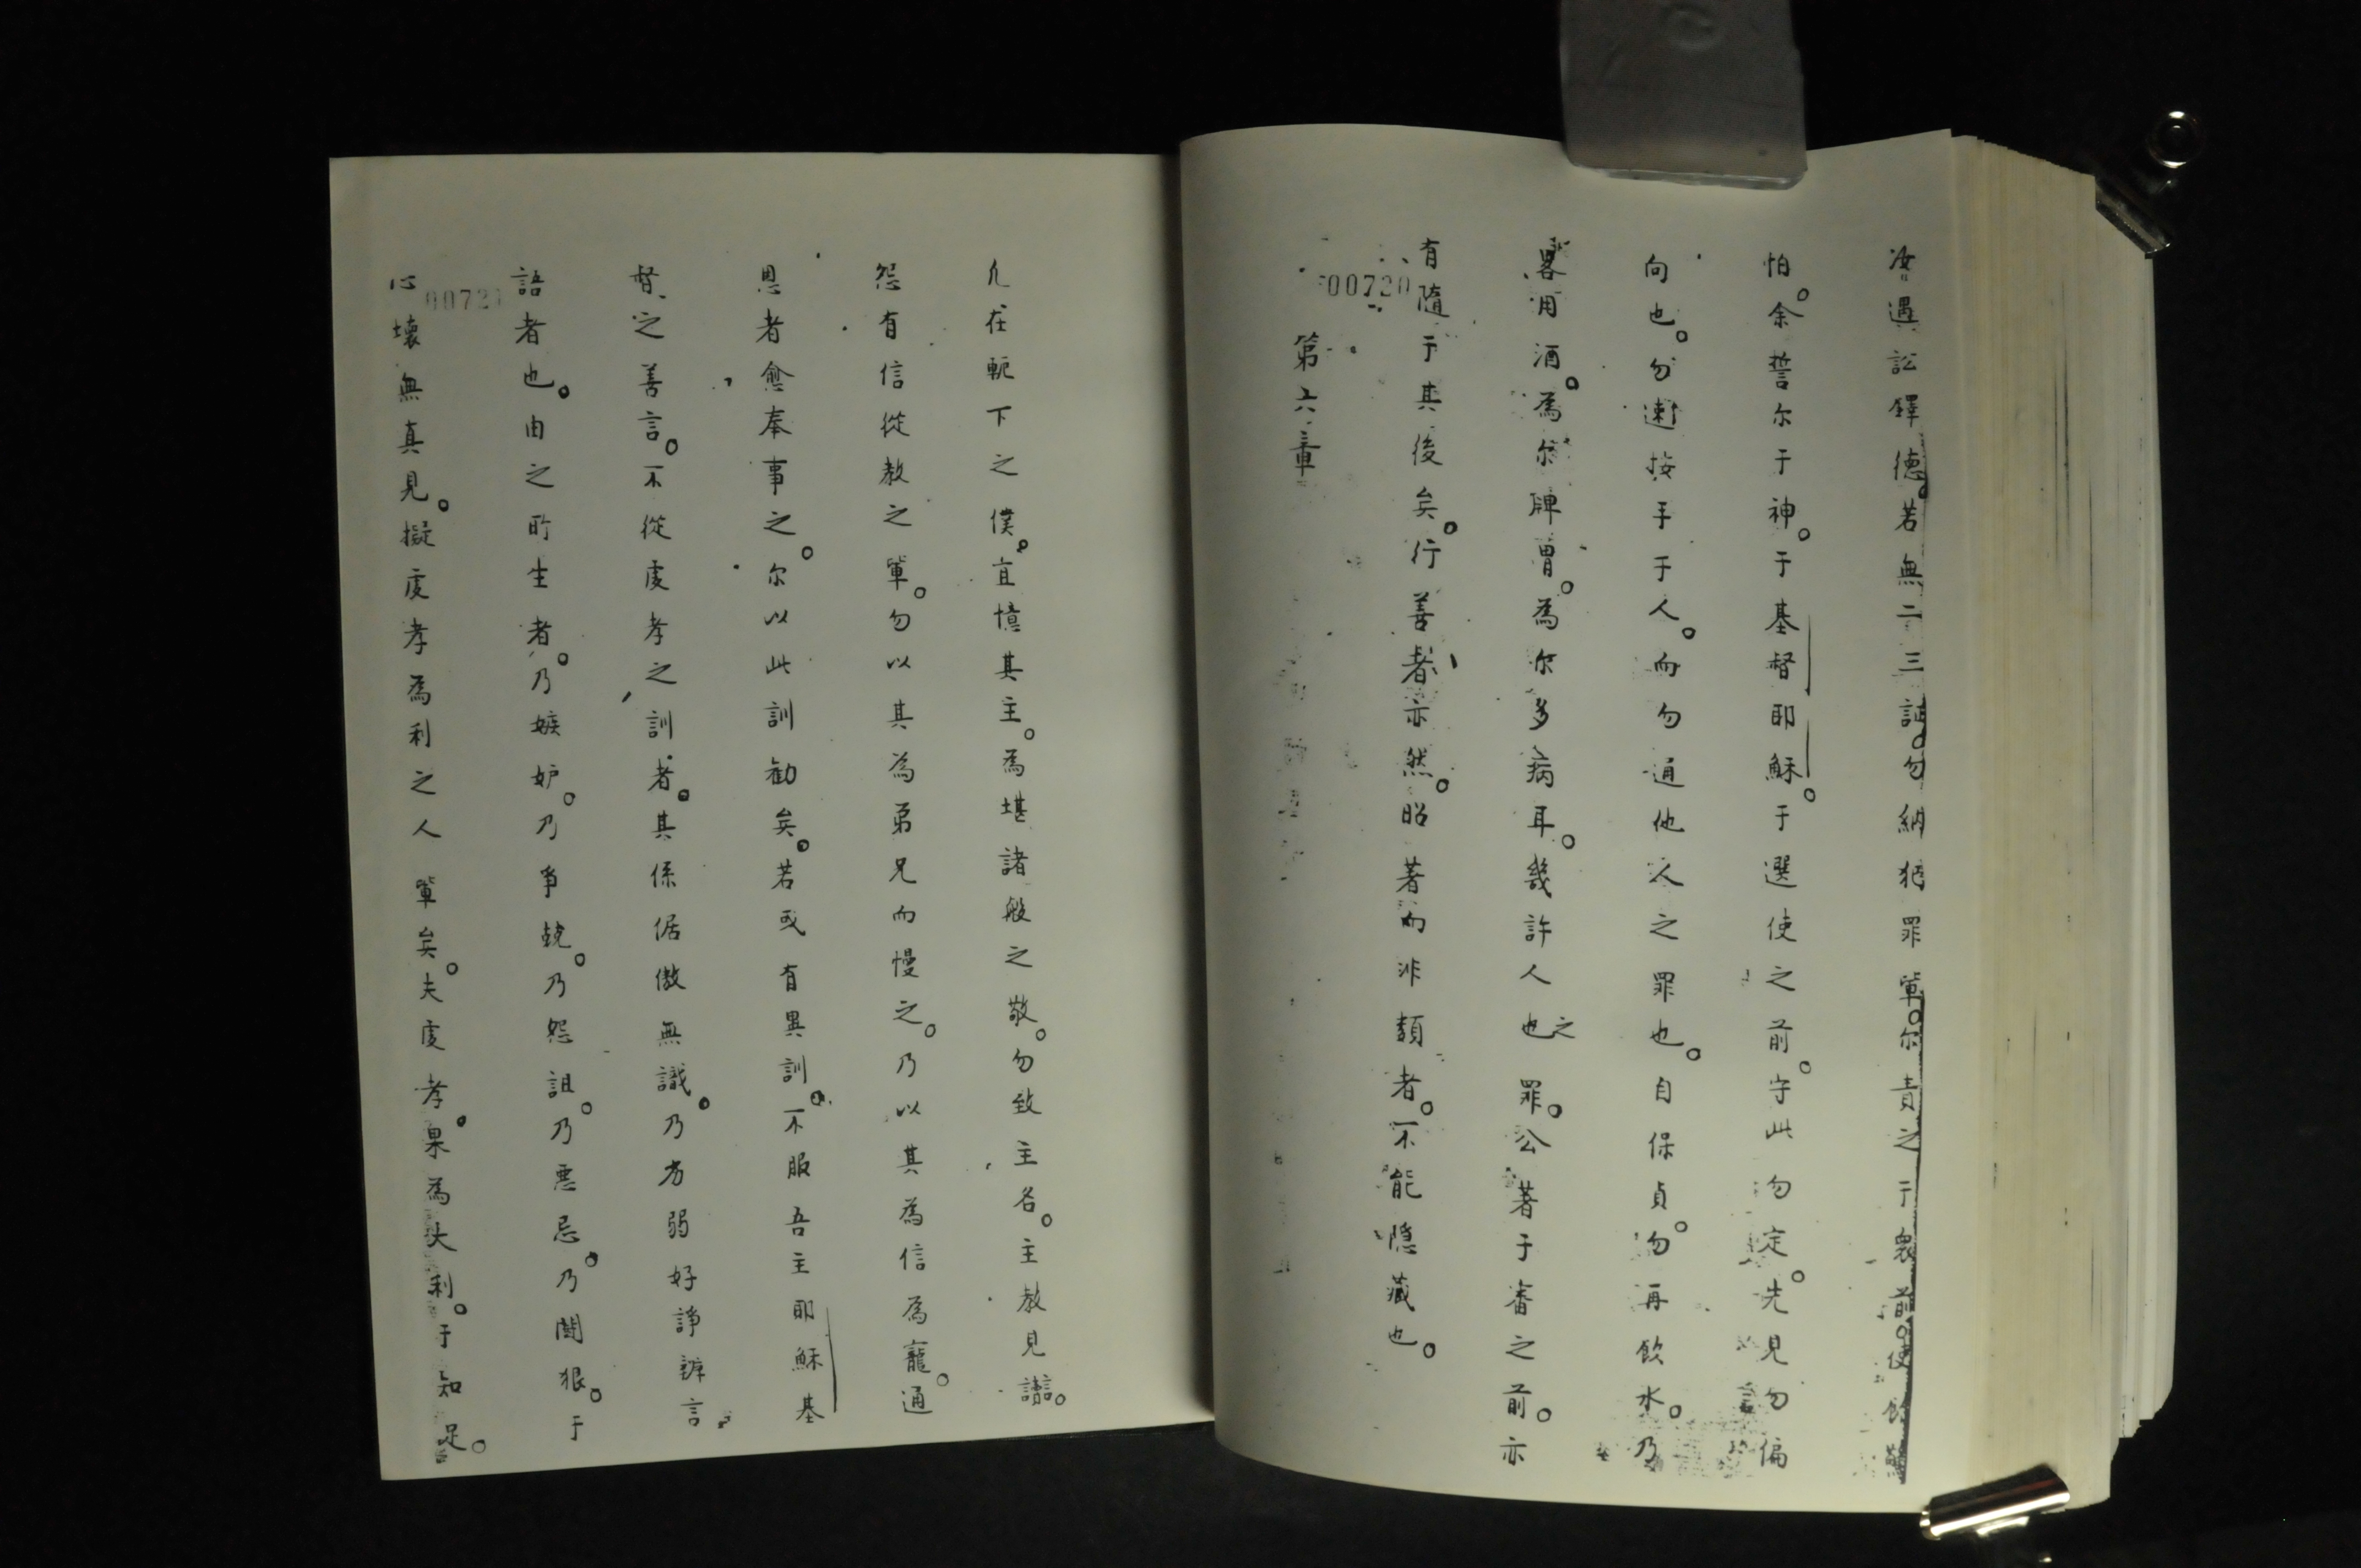 汝遇訟鐸德。若無二三証。勿納犯罪輩。尔責之于衆前。使餘
怕。余誓尔于神。于基督耶穌。于選使之前。守此勿定。先見勿偏
向也。勿速按手于人。而勿通他人之罪也。自保貞。勿再飲水。乃
畧用酒。為尔脾胃。為尔多病耳。幾許人也之罪。公著于審之前。亦
有隨于其後矣。行善者亦然。昭著而非類者。不能隱藏也。
00720
第六章
凢在軛下之僕。宜憶其主。為堪諸般之敬。勿致主名。主教見讃。
怨有信從教之輩。勿以其為弟兄而慢之。乃以其為信為寵。通
恩者愈奉事之。尔以此訓勸矣。若或有異訓。不服吾主耶穌基
督之善言。不從虔孝之訓者。其係倨傲無識。乃劣弱好諍辨言
語者也。由之所生者。乃嫉妒。乃爭競。乃怨詛。乃悪忌。乃鬪狠。于
0072
心壞無真見。擬虔孝為利之人輩矣。夫虔孝。果為大利。于知足。